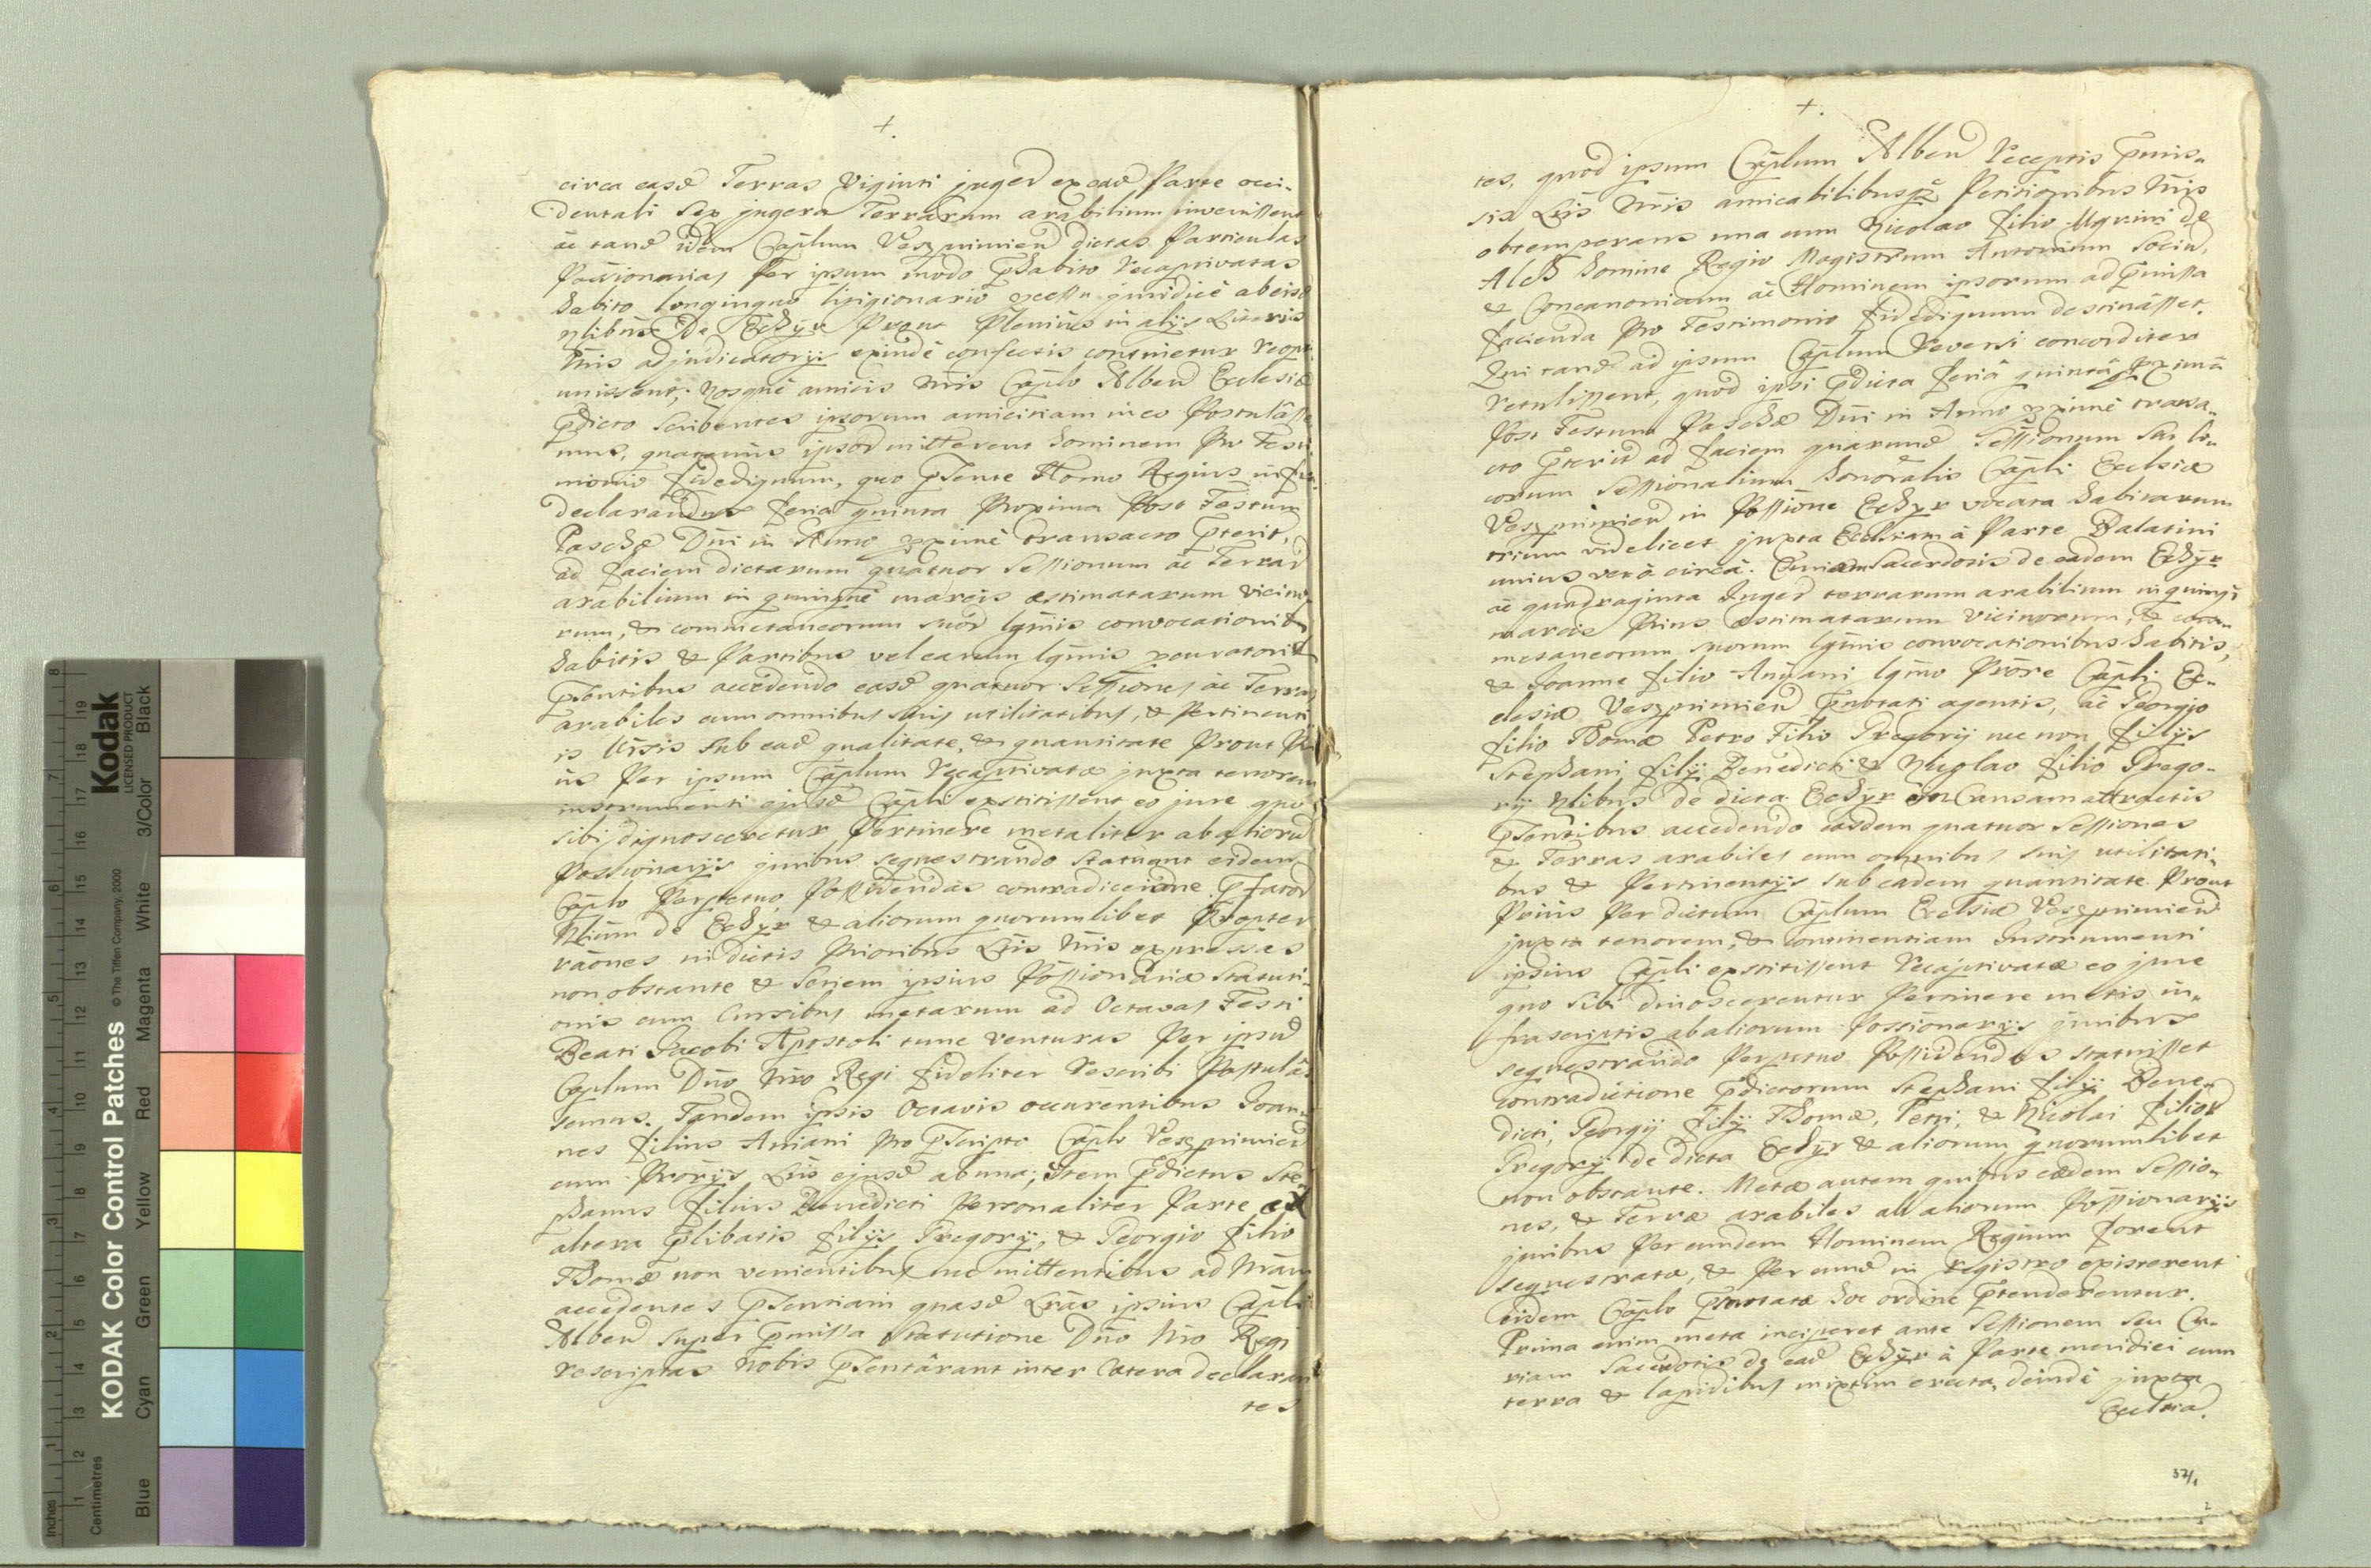 +.
circa easd Terras Viginti juger ex ead Parte occi-
dentali Sex jugera Terrarum arabilium invenissent
ac tand idem Capłum Veszprimien dictas Particulas
Possionarias Per ipsum modo Phabito recaptivatas
habito longinquo litigionario pcessu juridice ab eisd
Nlibus De Echÿr Prout Pleniùs in alÿs Literis
Nris adjudicatorÿs exindè confectis continetur reopti-
nuissent; Nosquè amicis Nris Capło Alben Ecclesiæ
Pdicto Scribentes ipsorum amicitiam in eo Postulâsse
mus, quatenus ipsor mitterent hominem Pro Testi
monio Fidedignum, quo Psente Homo Regius infra
declarandus feria quinta Proxima Post Festum
Paschæ Dni in Anno pximè transacto Pterit,
ad faciem dictarum quatuor Sessionum ac Terrar
arabilium in quinquè marcis æstimatarum vicino-
rum, & commetaneorum suor lgmis convocationib
habitis & Partibus vel earum lgmis pcuratorib
Psentibus accedendo easd quatuor Sessiones ac Terras
arabiles cum omnibus suis utilitatibus, & Pertinenti
is Ursis sub ead qualitate, & quantitate Prout Pri
ùs Per ipsum Capłum recaptivatæ juxta tenorem
instrumenti ejusd Capłi exstitissent eo jure quo
sibi dignosceretur Pertinere metaliter ab aliorũ
Possionarÿs juribus sequestrando statuant eidem
Capło Perpetuo Possidendas contradictione Pfator
Nlium de Echÿr & aliorum quorumlibet Propter
raones in dictis Prioribus Lris Nris expressas
non obstante & Seriem ipsius Possionariæ Statuti-
onis cum Cursibus metarum ad Octavas Festi
Beati Jacobi Apostoli tunc Venturas Per ipsũ
Capłum Dno Nro Regi fideliter rescribi Postulâs
semus. Tandem ipsis Octavis occurentibus Joan-
nes filius Aniani Pro Pscripto Capło Veszprimien
cum Prorÿs Lris ejusd ab una; Item Pdictus Ste-
phanus filius Benedicti Personaliter Parte ex
altera Plibatis filÿs Gregorÿ, & Georgio filio
Thomæ non venientibus nec mittentibus ad Nram
accedentes Psentiam quasd Lras ipsius Capłi
Alben super Pmissa Statutione Dno Nro Regi
rescriptas Nobis Psentârant inter Cætera declaran
tes
+.
tes, quod ipsum Capłum Alben receptis Pmis-
sis Lris Nris amicabilibusq Petitionibus Nris
obtemperans una cum Nicolao filio Ugrini de
Alch homine Regio Magistrum Antonium Sociũ,
& Concanonicum ac Hominem ipsorum ad Pmissa
facienda Pro Testimonio fidedignum destinâsset.
Qui tand ad ipsum Capłum Reversi concorditer
retulissent, quod ipsi Pdicta feriâ quintâ pximâ
Post Festum Paschæ Dni in Anno pximè transa-
cto Pterit ad faciem quarund Sessionum Seu lo-
corum Sessionalium honoralis Capłi Ecclsiæ
Veszprimien in Possione Echÿr vocata habitarum
trium videlicet juxta Ecclsiam à Parte Palatini
unius verò circà Curiam Sacerdotis de eadem Echÿr
ac quadraginta Juger terrarum arabilium in quinqè
marcis Prius æstimatarum vicinorum, & com-
metaneorum suorum lgmis convocationibus habitis,
& Joanne filio Anÿani lgmo Prore Capłi Ec-
clesiæ Veszprimien Pnotati agentis, ac Georgio
filio Thomæ Petro Filio Gregorÿ nec non filÿs
Stephani filÿ Benedicti & Nicolao filio Grego-
rÿ Nlibus de dicta Echÿr in Causam attractis
Psentibus accedendo easdem quatuor Sessiones
& Terras arabiles cum omnibus suis utilitati-
bus & Pertinentÿs sub eadem quantitate Prout
Priùs Per dictum Capłum Ecclsiæ Veszprimien
juxta tenorem, & continentiam Instrumenti
ipsius Capłi exstitissent recaptivatæ eo jure
quo sibi dinoscerentur Pertinere metis in-
frascriptis ab aliorum Possionarÿs juribus
sequestrando Perpetuo Possidendas statuisset
contradictione Pdictorum Stephani filÿ Bene-
dicti, Georgÿ filÿ Thomæ, Petri, & Nicolai filior
Gregorÿ de dicta Echÿr & aliorum quorumlibet
non obstante. Metæ autem quibus eædem Sessio-
nes, & Terræ arabiles ab aliorum Possionarÿs
juribus Per eundem Hominem Regium forent
sequestratæ, & Per eund in registro existerent
eidem Capło Pnotatæ hoc ordine Ptenderentur.
Prima enim meta inciperet ante Sessionem seu Cu-
riam Sacerdotis de ead Echÿr à Parte meridiei cum
terra & lapidibus mixtim erecta, deindè juxta
Ecclsia
37/1
2
KODAK Color Control Patches
© The Tiffen Company, 2000
Kodak
LICENSED PRODUCT
Inches
Centimetres
Blue
Cyan
Green
Yellow
Red
Magenta
White
3/Color
Black